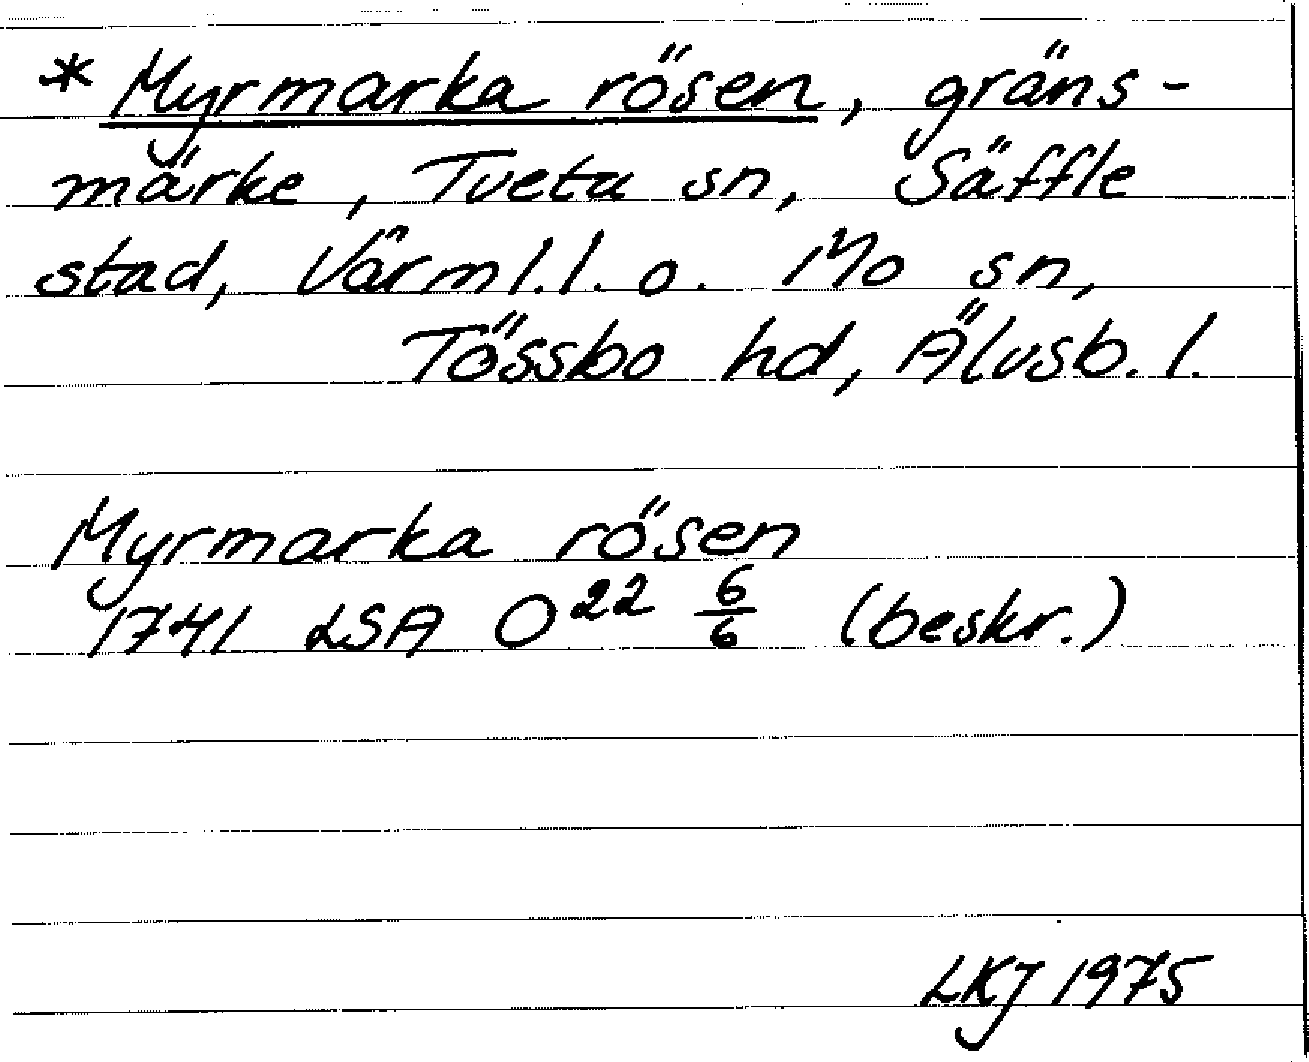 * Myrmarka rösen, gräns-
märke, Tveta sn, Säffle
stad, Värml.l. o. Mo sn,
Tössbo hd, Älvsb. l.
Myrmarka rösen
1741 LSA O²² 6/6 (beskr.)
LKJ 1975